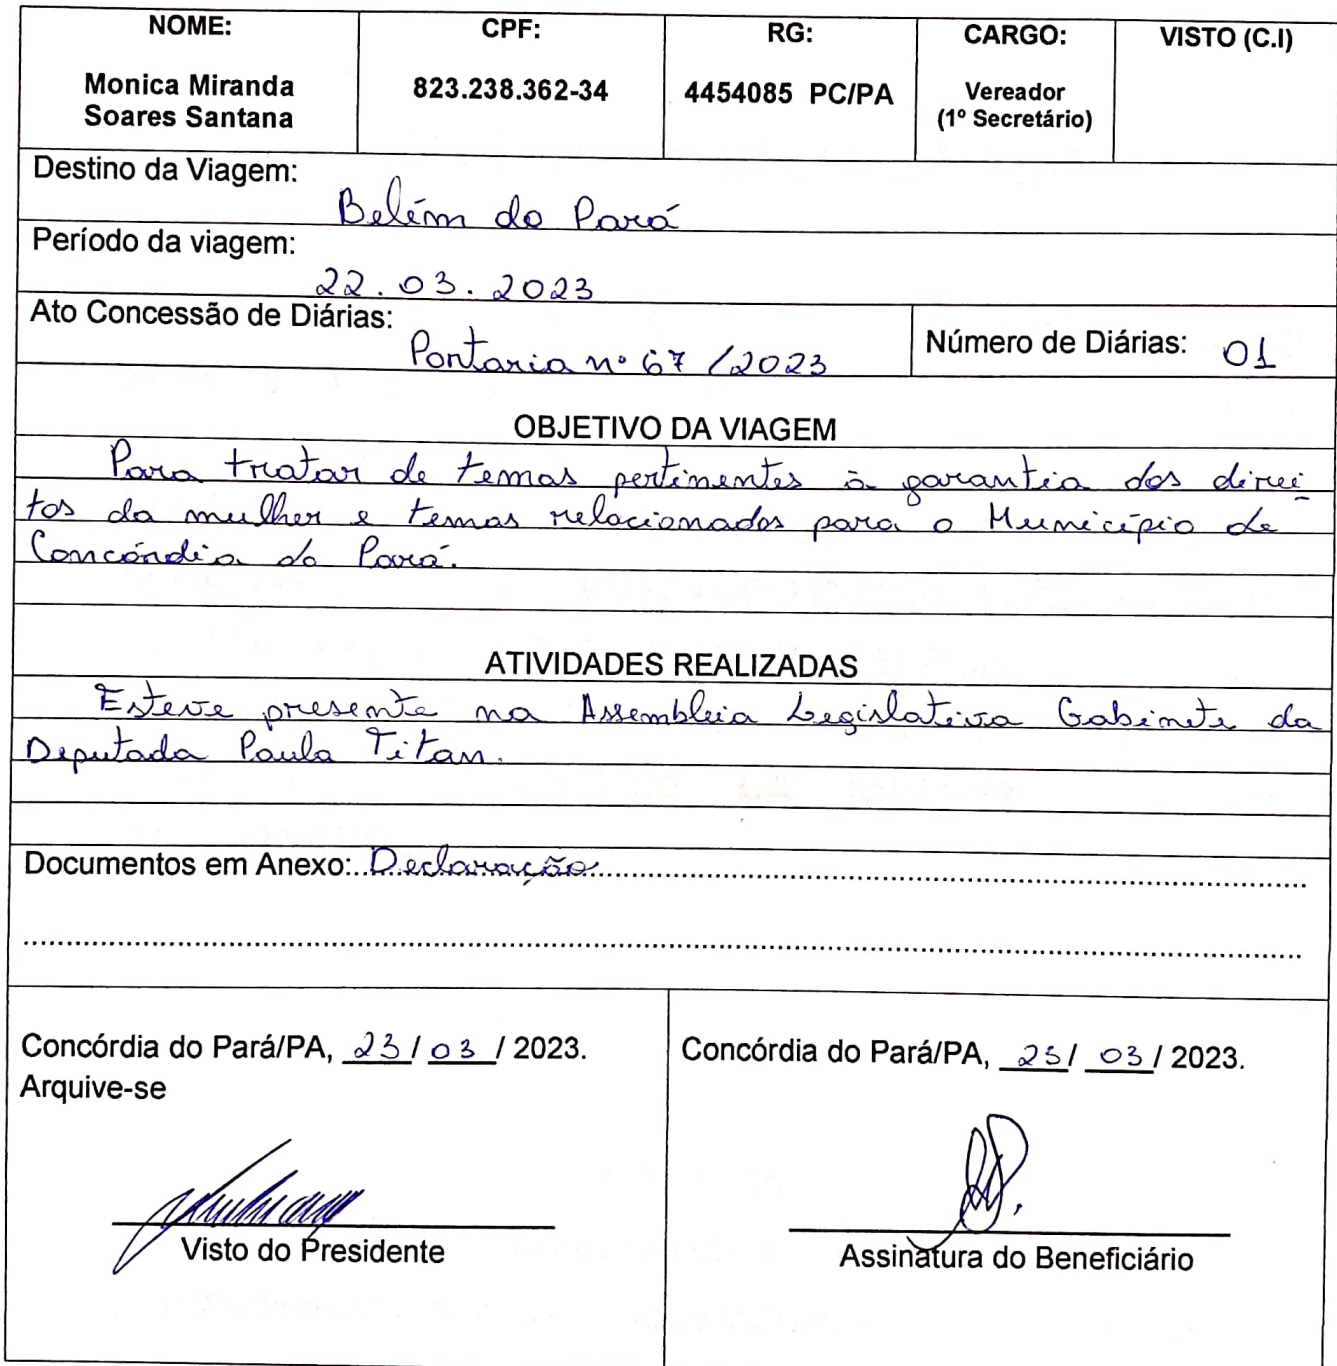 NOME: CPF: RG: CARGO: VISTO (C.I)
Monica Miranda 823.238.362-34 4454085 PC/PA Vereador
Soares Santana (1º Secretário)
Destino da Viagem:
Belém do Pará
Período da viagem:
22.03.2023
Ato Concessão de Diárias:
Portaria nº 67/2023 Número de Diárias: 01
OBJETIVO DA VIAGEM
Para tratar de temas pertinentes à garantia dos direi
tos da mulher e temas relacionados para o Município de
Concórdia do Pará.
ATIVIDADES REALIZADAS
Esteve presente na Assembleia Legislativa Gabinete da
Deputada Paula Titan.
Documentos em Anexo: Declaração
Concórdia do Pará/PA, 23/03/2023. Concórdia do Pará/PA, 23/03/2023.
Arquive-se
Visto do Presidente Assinatura do Beneficiário